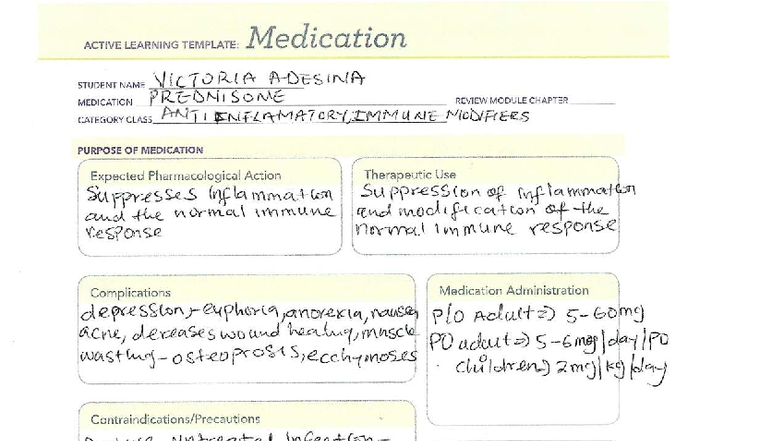 ACTIVE LEARNING TEMPLATE: Medication
STUDENT NAME VICTORIA ADESINA
MEDICATION PREDNISOME
REVIEW MODULE CHAPTER
CATEGORY CLASS ANTI INFLAMATORY, IMMUNE MODIFIERS
PURPOSE OF MEDICATION
Expected Pharmacological Action
Suppresses inflammation
and the normal immune
response
Therapeutic Use
Suppression of inflammation
and modification of the
normal immune response
Complications
depression, euphoria, anorexia, nausea
acne, decreases wound healing, muscle
wasting - osteoprosis, ecchymoses
Medication Administration
P/O Adult => 5-60mg
PO adult => 5-6mg/day/PO
children => 2mg/kg/day
Contraindications/Precautions
Untreated Infection -